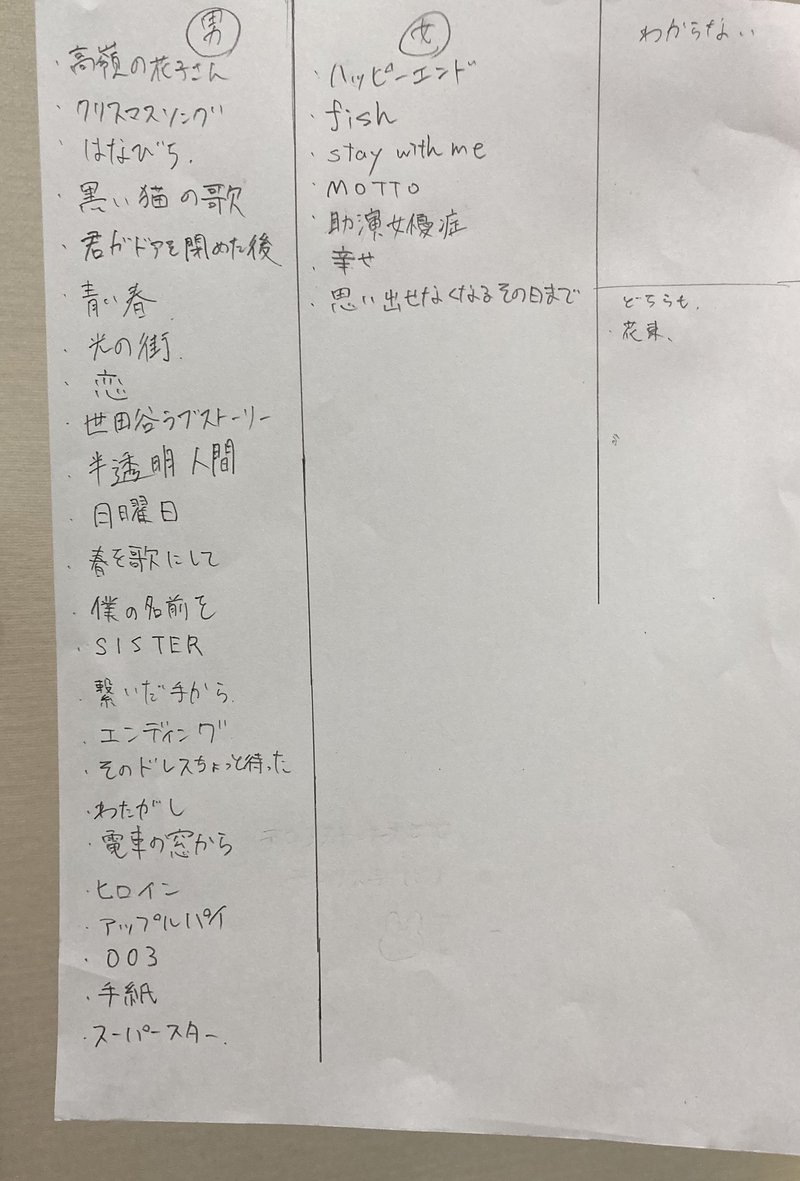 男
・高嶺の花子さん
・クリスマスソング
・はなびら.
・黒い猫の歌
・君がドアを閉めた後
・青い春
・光の街.
・恋
・世田谷ラブストーリー
・半透明人間
・日曜日
・春を歌にして
・僕の名前を
・SISTER
・繋いだ手から
・エンディング
・そのドレスちょっと待った
・わたがし
・電車の窓から
・ヒロイン
・アップルパイ
・003
・手紙
・スーパースター.
女
・ハッピーエンド
・fish
・stay with me
・MOTTO
・助演女優症
・幸せ
・思い出せなくなるその日まで
わからない
どちらも.
・花束、